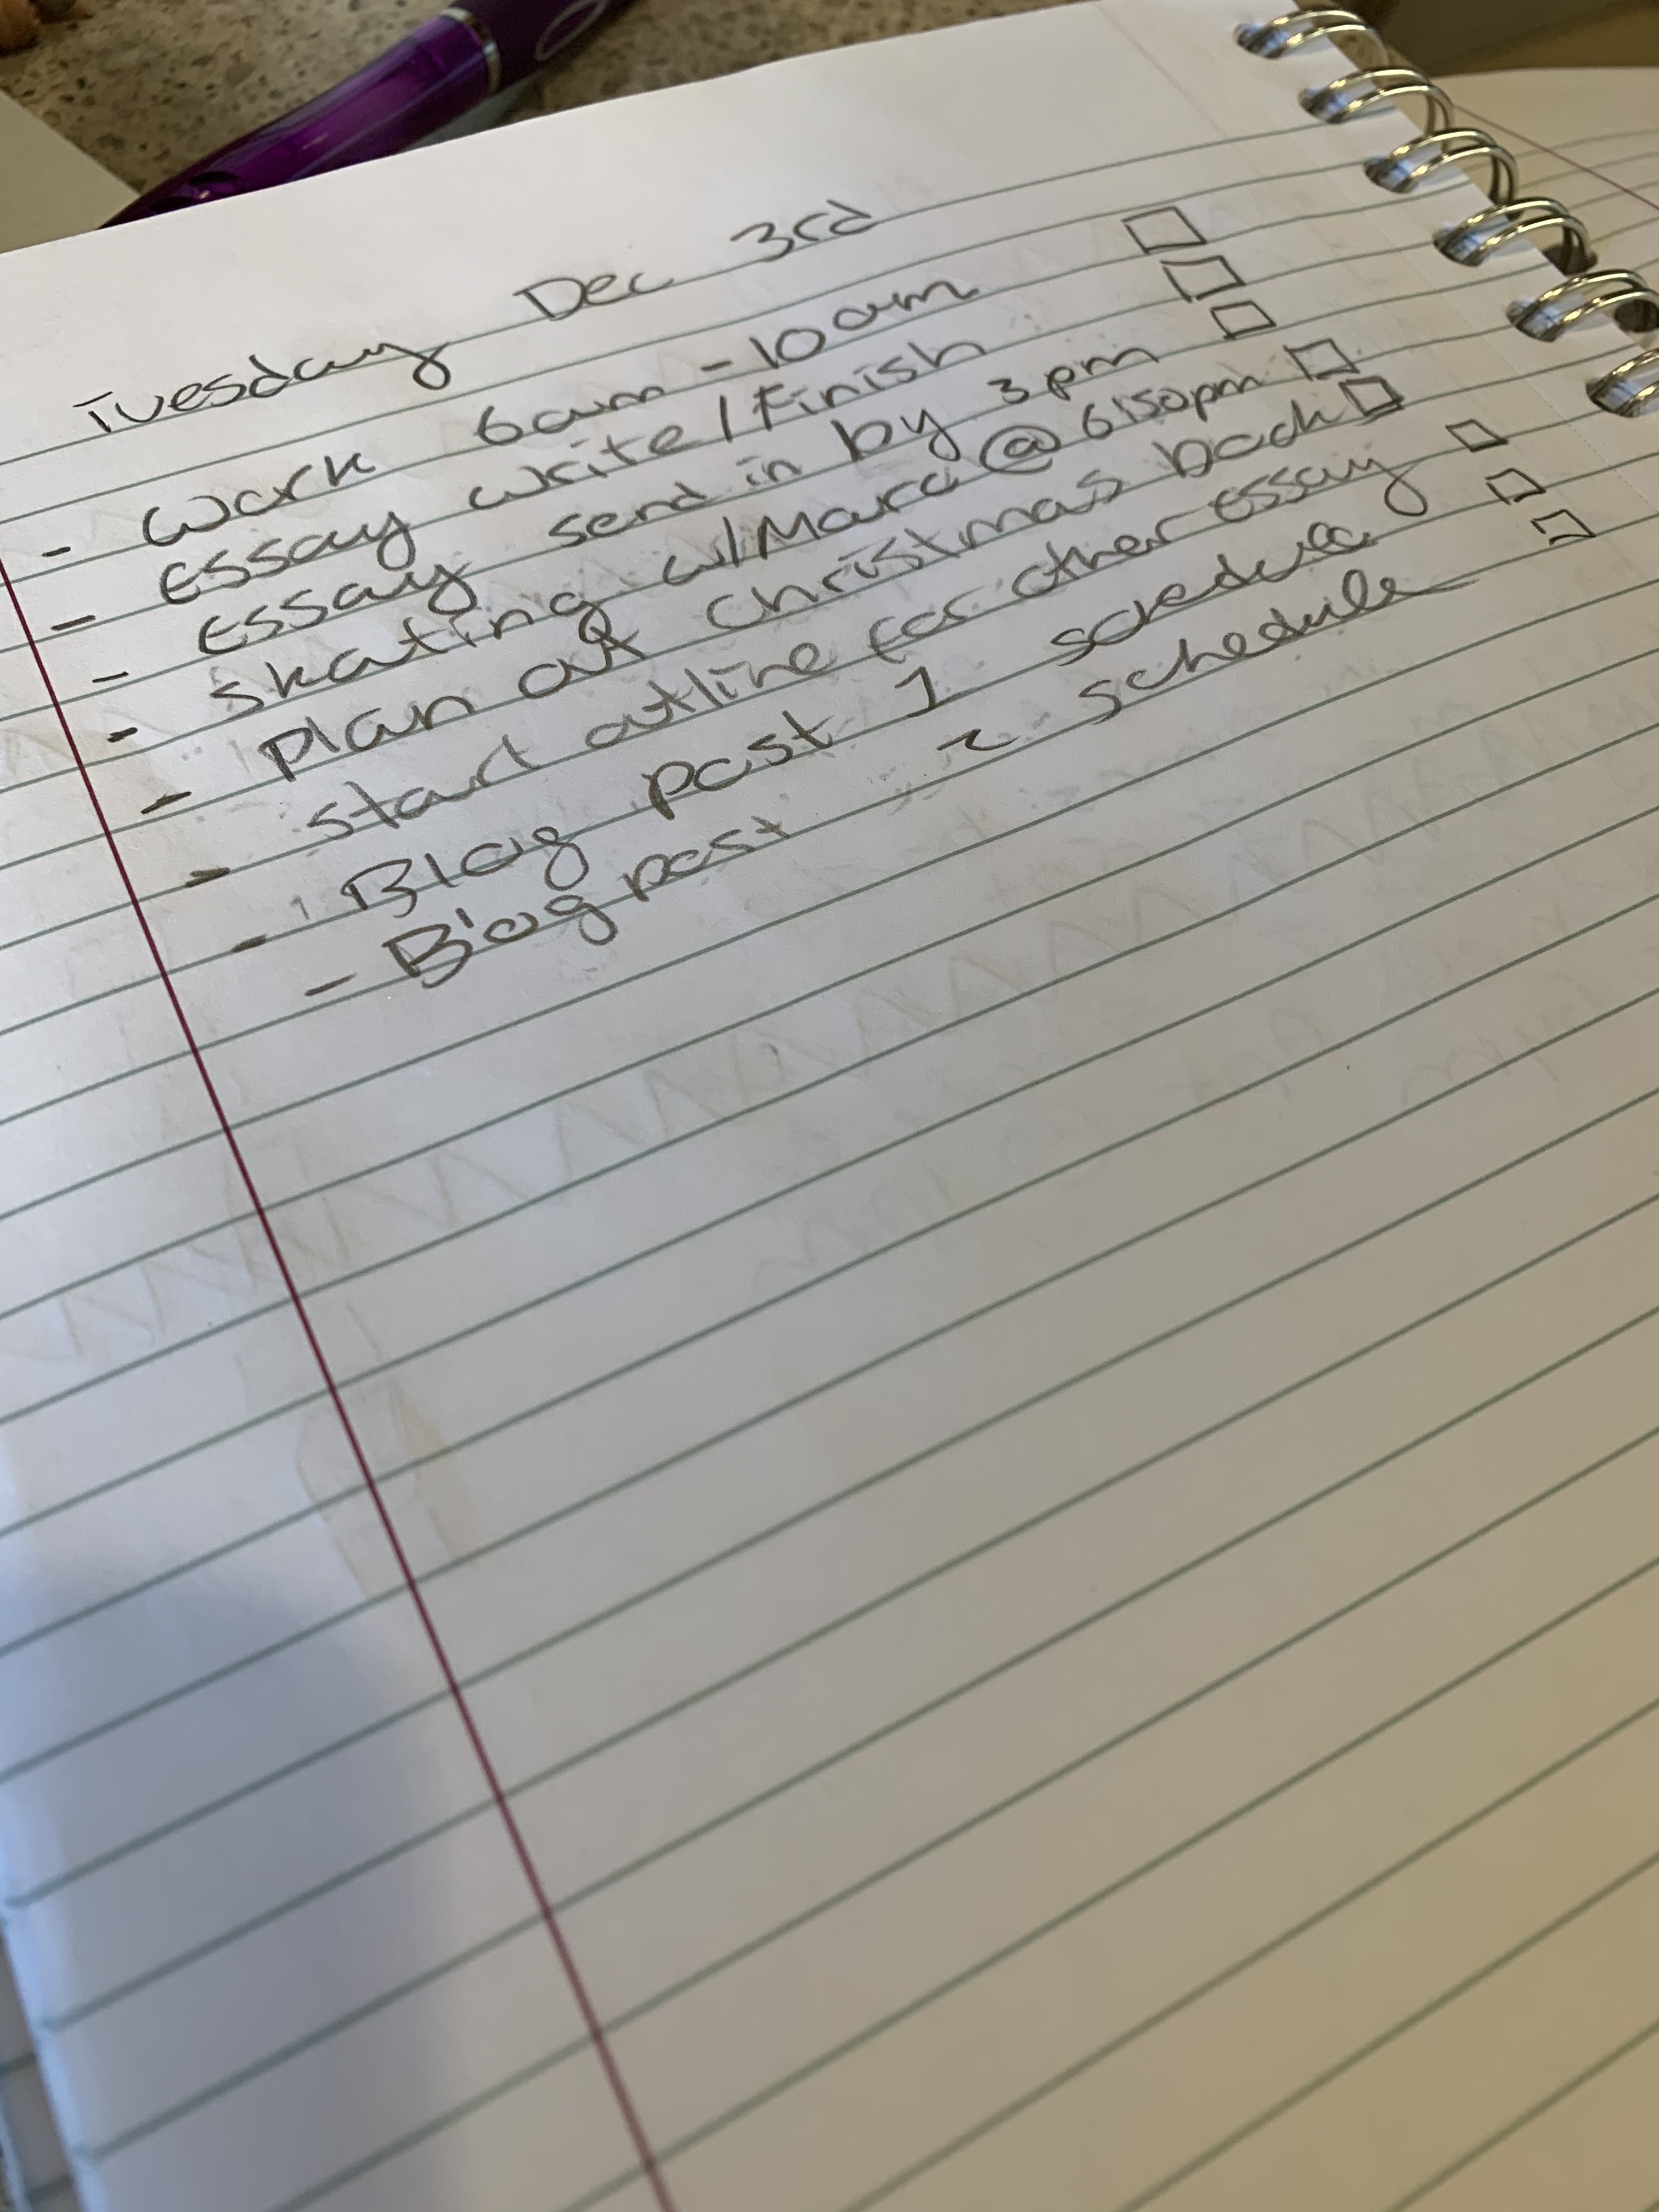 Tuesday Dec 3rd
- Work 6am - 10am
- Essay write/Finish
- Essay send in by 3pm
- skating w/Mara @ 6:50pm
- Plan out Christmas back
- start outline for other essay
- Blog post 1 schedule
- Blog post 2 schedule